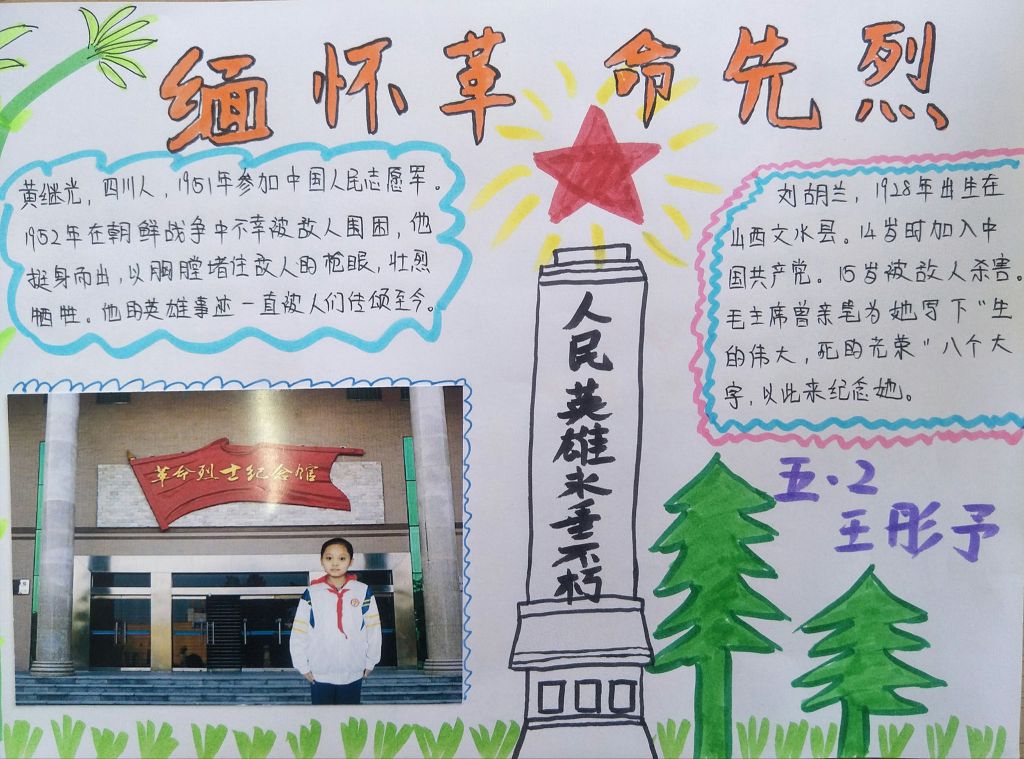 缅怀革命先烈
黄继光，四川人，1951年参加中国人民志愿军。
1952年在朝鲜战争中不幸被敌人围困，他
挺身而出，以胸膛堵住敌人的枪眼，壮烈
牺牲。他的英雄事迹一直被人们传颂至今。
刘胡兰，1928年出生在
山西文水县。14岁时加入中
国共产党。15岁被敌人杀害。
毛主席曾亲笔为她写下“生
的伟大，死的光荣”八个大
字，以此来纪念她。
人民英雄永垂不朽
革命烈士纪念馆
五.2
王彤予